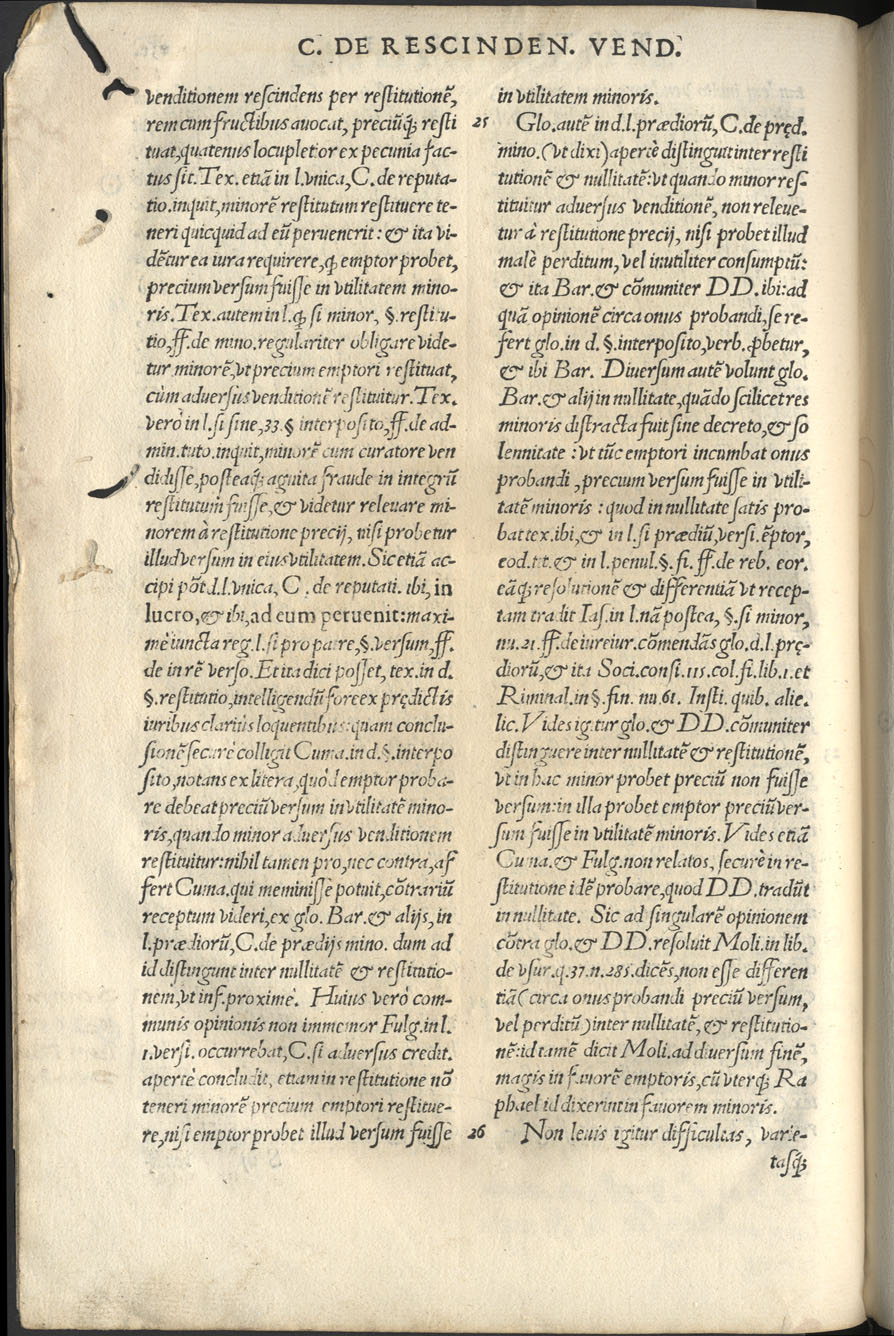 C. DE RESCINDEN. VEND.
venditionem rescindens per restitutionẽ,
rem cum fructibus auocat, preciũq́; resti
tuat, quatenus locupletior ex pecunia fac-
tus sit. Tex. etiã in l. vnica, C. de reputa-
tio. inquit, minorẽ restitutum restituere te-
neri quicquid ad eũ peruenerit: & ita vi-
dẽtur ea iura requirere, q̃ emptor probet,
precium versum fuisse in vtilitatem mino-
ris. Tex. autem in l. q̃ si minor, §. restitu-
tio, ff. de mino. regulariter obligare vide-
tur minorẽ, vt precium emptori restituat,
cùm aduersus venditionẽ restituitur. Tex.
verò in l. si sine, 33. § interposito, ff. de ad-
min. tuto. inquit, minorẽ cum curatore ven
didisse, posteaq́; agnita fraude in integrũ
restitutum fuisse, & videtur releuare mi-
norem à restitutione precij, nisi probetur
illud versum in eius vtilitatem. Sic etiã ac-
cipi põt d. l. vnica, C. de reputati. ibi, in
lucro, & ibi, ad eum peruenit: maxi-
mè iuncta reg. l. si pro patre, §. versum, ff.
de in rẽ verso. Et ita dici posset, tex. in d.
§. restitutio, intelligendũ fore ex prędictis
iuribus clariùs loquentibus: quam conclu-
sionẽ securè colligit Cuma. in d. §. interpo
sito, notans ex litera, quòd emptor proba-
re debeat preciũ versum in vtilitatẽ mino-
ris, quando minor aduersus venditionem
restituitur: nihil tamen pro, nec contra, af
fert Cuma. qui meminisse potuit, cõtrariũ
receptum videri, ex glo. Bar. & alijs, in
l. prædiorũ, C. de prædijs mino. dum ad
id distingunt inter nullitatẽ & restitutio-
nem, vt inf. proximè. Huius verò com-
munis opinionis non immemor Fulg. in l.
1. versi. occurrebat, C. si aduersus credit.
apertè concludit, etiam in restitutione nõ
teneri minorẽ precium emptori restitue-
re, nisi emptor probet illud versum fuisse
in vtilitatem minoris.
25 Glo. autẽ in d. l. prædiorũ, C. de pręd.
mino. (vt dixi) apertè distinguit inter resti
tutionẽ & nullitatẽ: vt quando minor res-
tituitur aduersus venditionẽ, non releue-
tur à restitutione precij, nisi probet illud
malè perditum, vel inutiliter consumptũ:
& ita Bar. & cõmuniter DD. ibi: ad
quã opinionẽ circa onus probandi, se re-
fert glo. in d. §. interposito, verb. ꝓbetur,
& ibi Bar. Diuersum autẽ volunt glo.
Bar. & alij in nullitate, quãdo scilicet res
minoris distracta fuit sine decreto, & so
lennitate: vt tũc emptori incumbat onus
probandi, precium versum fuisse in vtili-
tatẽ minoris: quod in nullitate satis pro-
bat tex. ibi, & in l. si prædiũ, versi. ẽptor,
eod. tit. & in l. penul. §. fi. ff. de reb. eor.
eãq́; resolutionẽ & differentiã vt recep-
tam tradit Ias. in l. nã postea, §. si minor,
nu. 21. ff. de iureiur. cõmendãs glo. d. l. prę-
diorũ, & ita Soci. consi. 115. col. fi. lib. 1. et
Riminal. in §. fin. nu. 61. Insti. quib. alie.
lic. Vides ig. tur glo. & DD. cõmuniter
distinguere inter nullitatẽ & restitutionẽ,
vt in hac minor probet preciũ non fuisse
versum: in illa probet emptor preciũ ver-
sum fuisse in vtilitatẽ minoris. Vides etiã
Cuma. & Fulg. non relatos, securè in re-
stitutione idẽ probare, quod DD. tradũt
in nullitate. Sic ad singularẽ opinionem
cõtra glo. & DD. resoluit Moli. in lib.
de vsur. q. 37. n. 285. dicẽs, non esse differen
tiã (circa onus probandi preciũ versum,
vel perditũ) inter nullitatẽ, & restitutio-
nẽ: id tamẽ dicit Moli. ad diuersum finẽ,
magis in fauorẽ emptoris, cũ vterq́; Ra
phael id dixerint in fauorem minoris.
26 Non leuis igitur difficultas, varie-
tasq́;